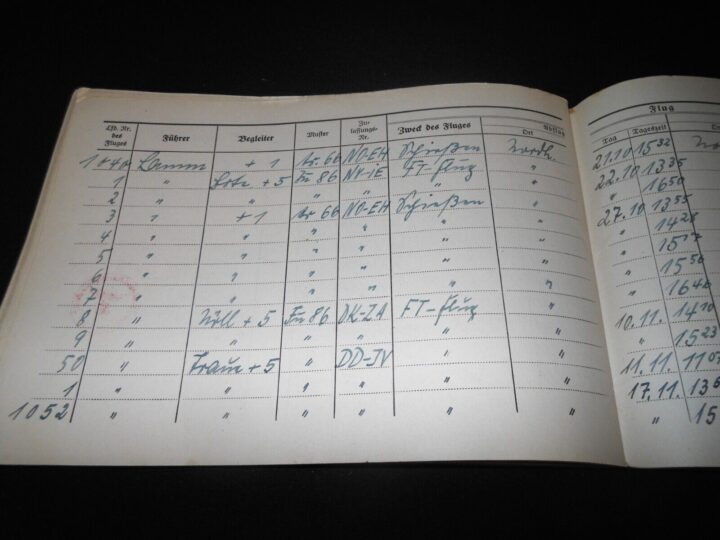 Lfd. Nr. des Fluges Führer Begleiter Muster Zu- lassungs- Nr. Zweck des Fluges Ort Abflug Flug Tag Tageszeit
1040 Lamm +1 Ar. 66 NO-EH Schießen Nordh. 21.10 15 32
1 " + 5 Ju 86 FT-Flug " 22.10 13 35
2 " " " " " " 16 50
3 " +1 Ar 66 NO-EH Schießen " 27.10 13 55
4 " " " " " " " 14 28
5 " " " " " " " 15 17
6 " " " " " " " 15 56
7 " " " " " " " 16 40
8 " + 5 Ju 86 DK-ZA FT-Flug " 10.11. 14 10
9 " " " " " " " 15 23
50 " + 5 " DD-JV " " 11.11. 11 05
1 " " " " " " 17.11. 13
1052 " " " " " " " 15